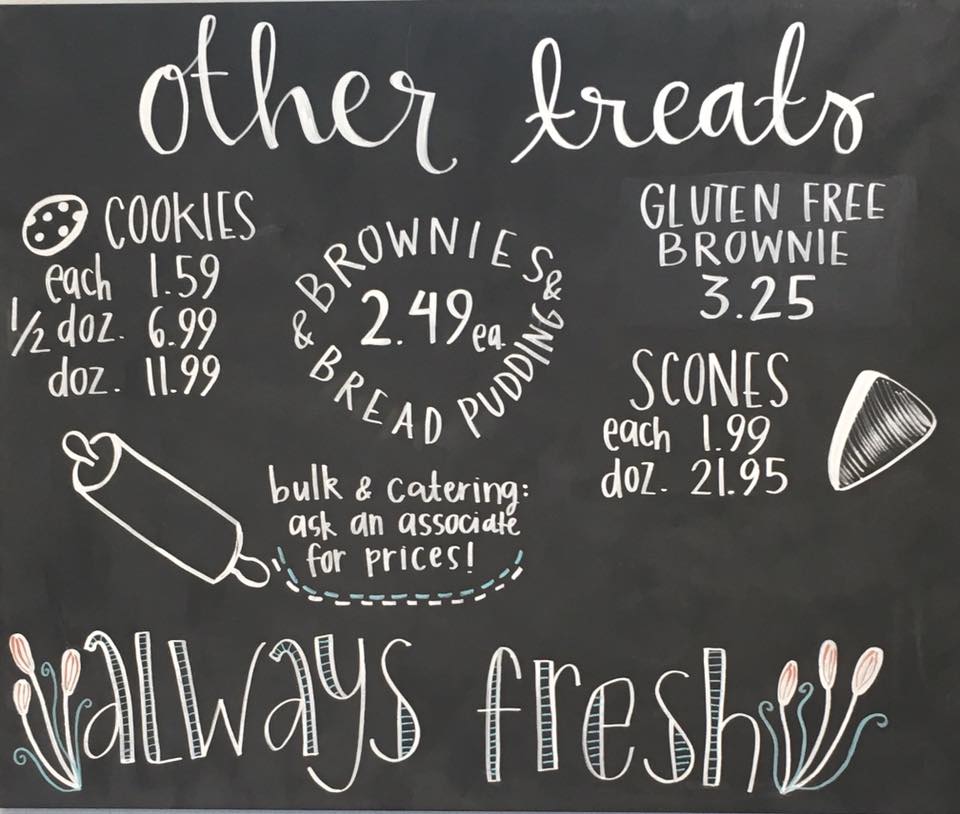 other treats
COOKIES
each 1.59
1/2 doz. 6.99
doz. 11.99
BROWNIES &
2.49 ea.
& BREAD PUDDING
GLUTEN FREE
BROWNIE
3.25
SCONES
each 1.99
doz. 21.95
bulk & catering:
ask an associate
for prices!
always fresh